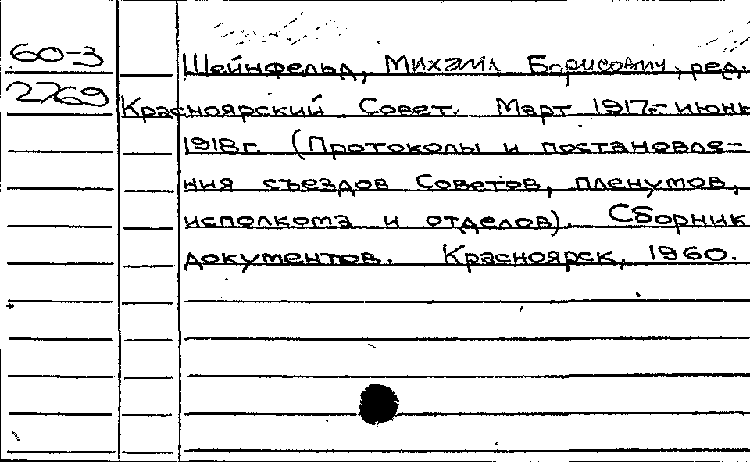 60-3 Шейнфельд, Михаил Борисович, ред.
2769 Красноярский Совет. Март 1917г.-июнь
1918г. (Протоколы и постановле-
ния съездов Советов, пленумов,
исполкома и отделов). Сборник
документов. Красноярск, 1960.